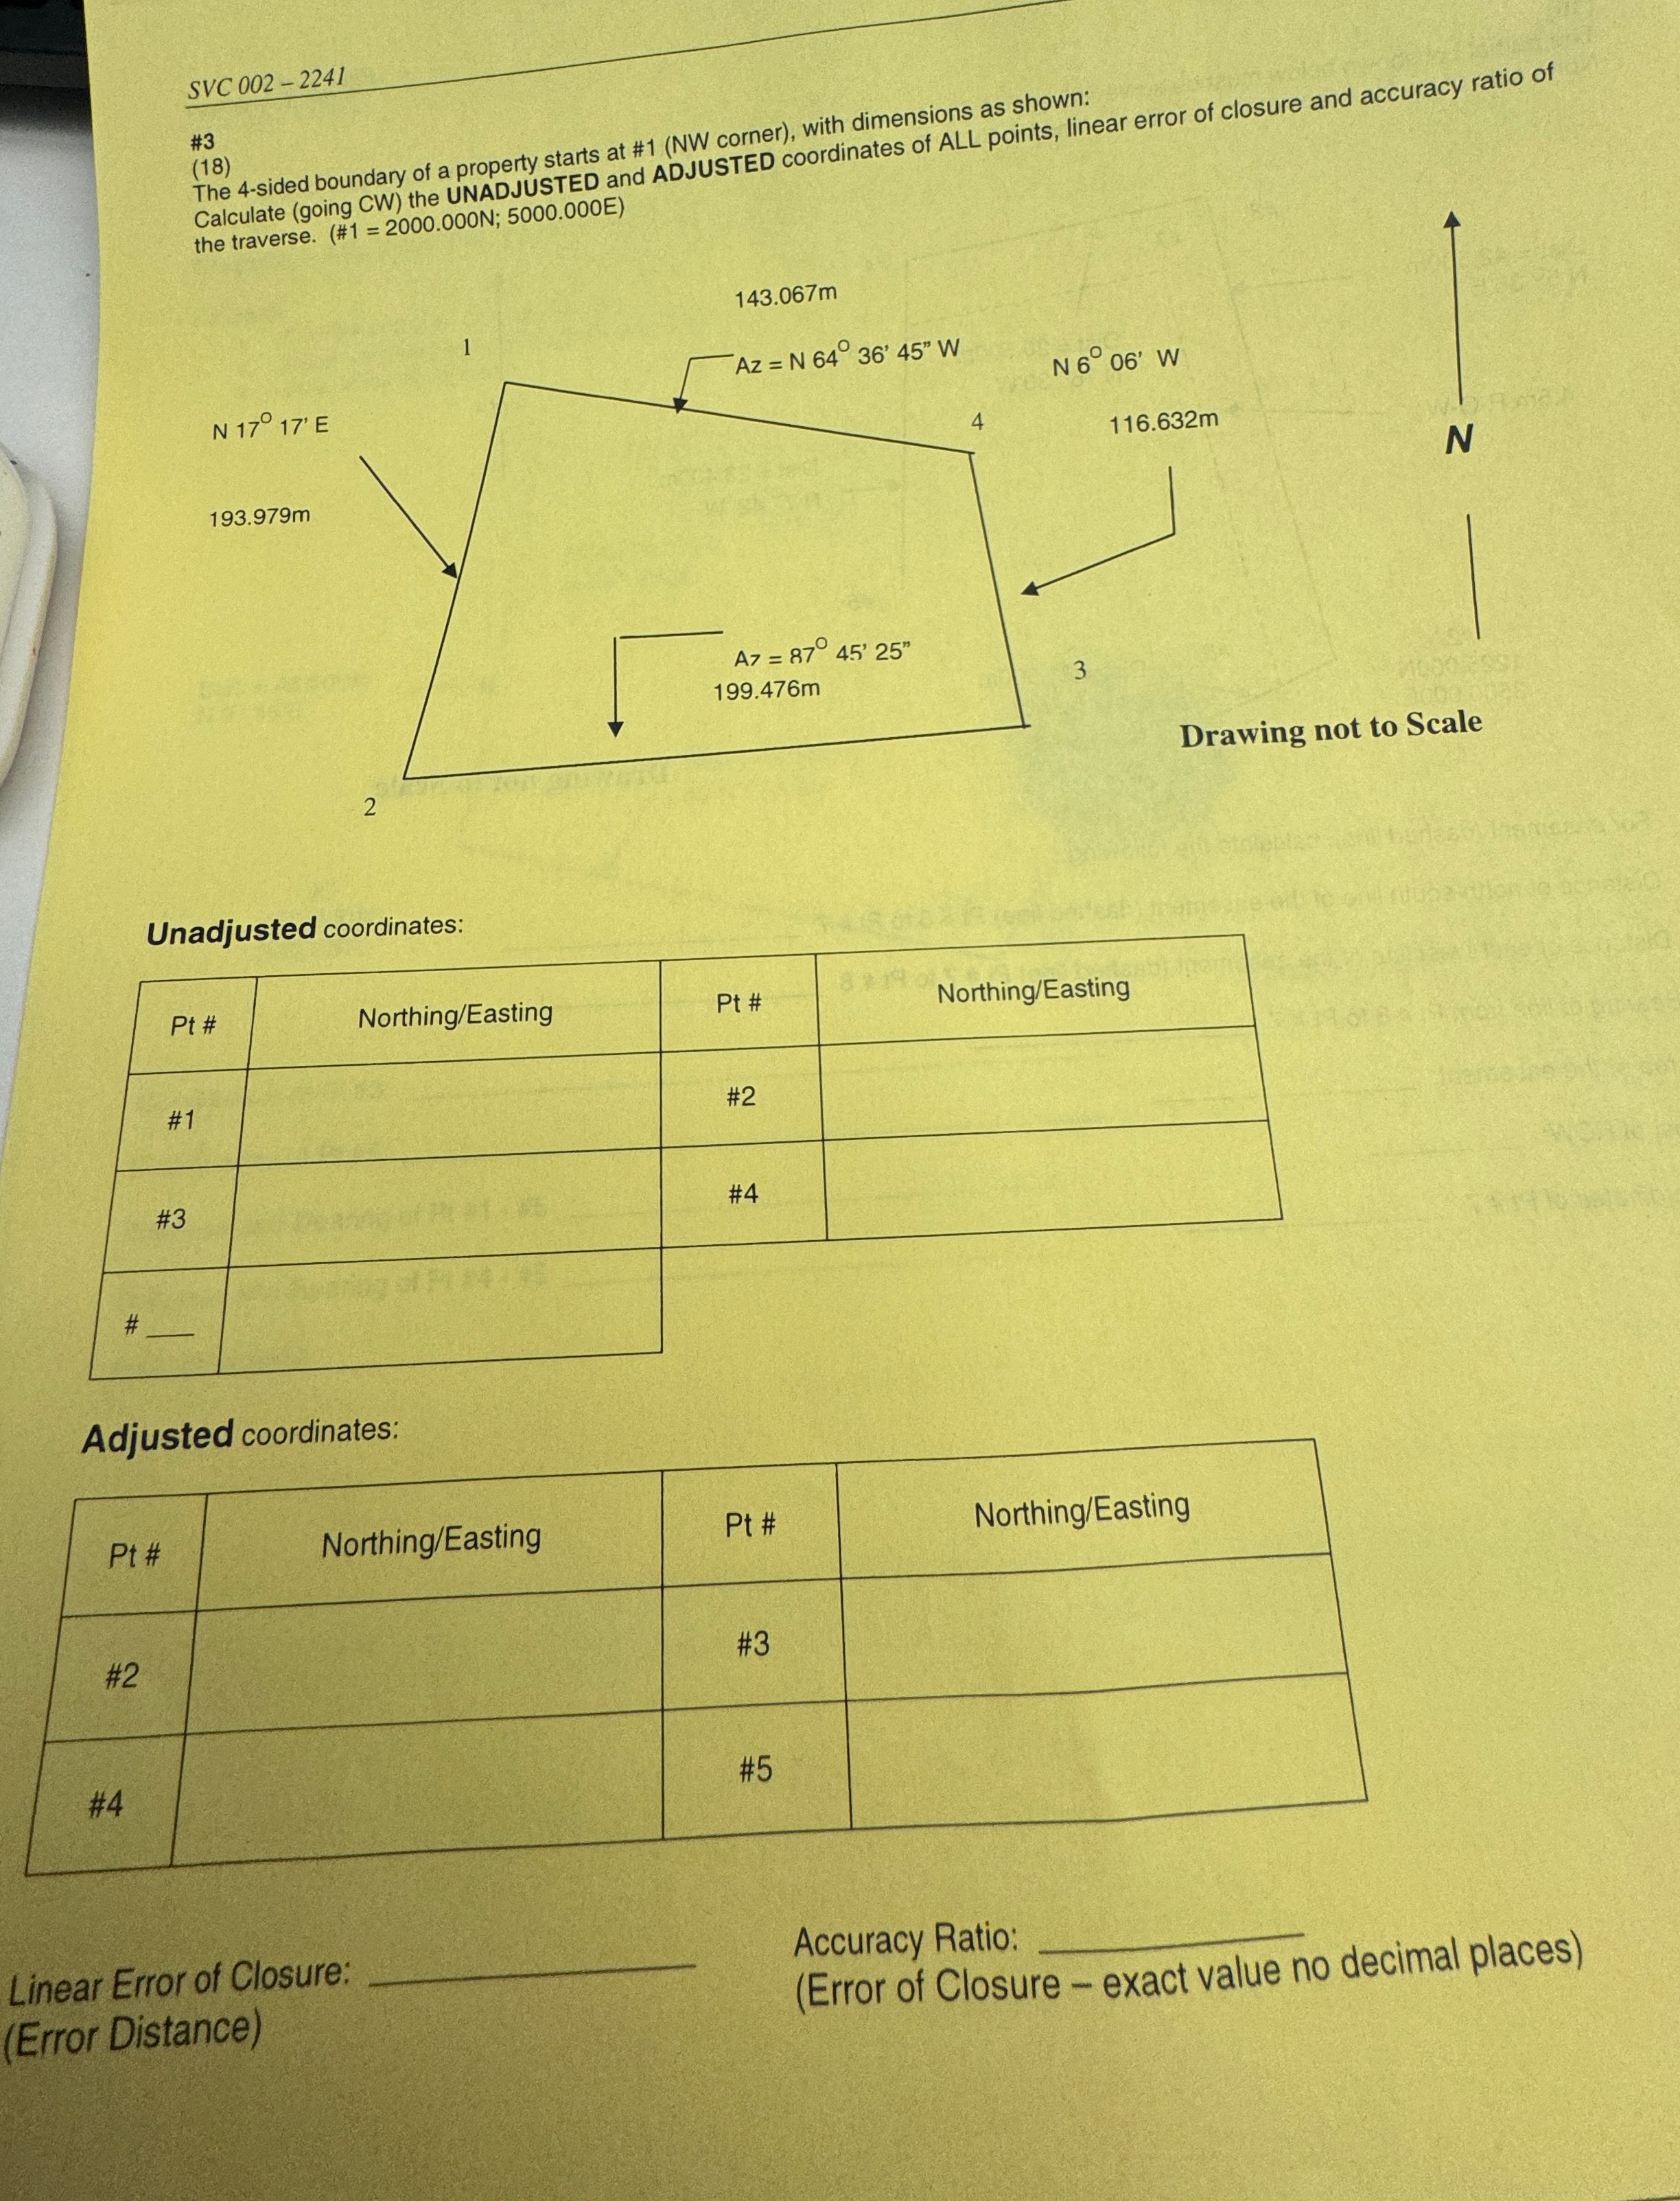 SVC 002 – 2241
#3
(18)
The 4-sided boundary of a property starts at #1 (NW corner), with dimensions as shown:
Calculate (going CW) the UNADJUSTED and ADJUSTED coordinates of ALL points, linear error of closure and accuracy ratio of
the traverse. (#1 = 2000.000N; 5000.000E)
143.067m
1
Az = N 64° 36' 45" W
N 6° 06' W
N 17° 17' E
4
116.632m
N
193.979m
Az = 87° 45' 25"
199.476m
3
Drawing not to Scale
2
Unadjusted coordinates:
Pt # Northing/Easting Pt # Northing/Easting
#1 #2
#3 #4
# ___
Adjusted coordinates:
Pt # Northing/Easting Pt # Northing/Easting
#2 #3
#4 #5
Linear Error of Closure: ___ Accuracy Ratio: ___
(Error Distance) (Error of Closure – exact value no decimal places)